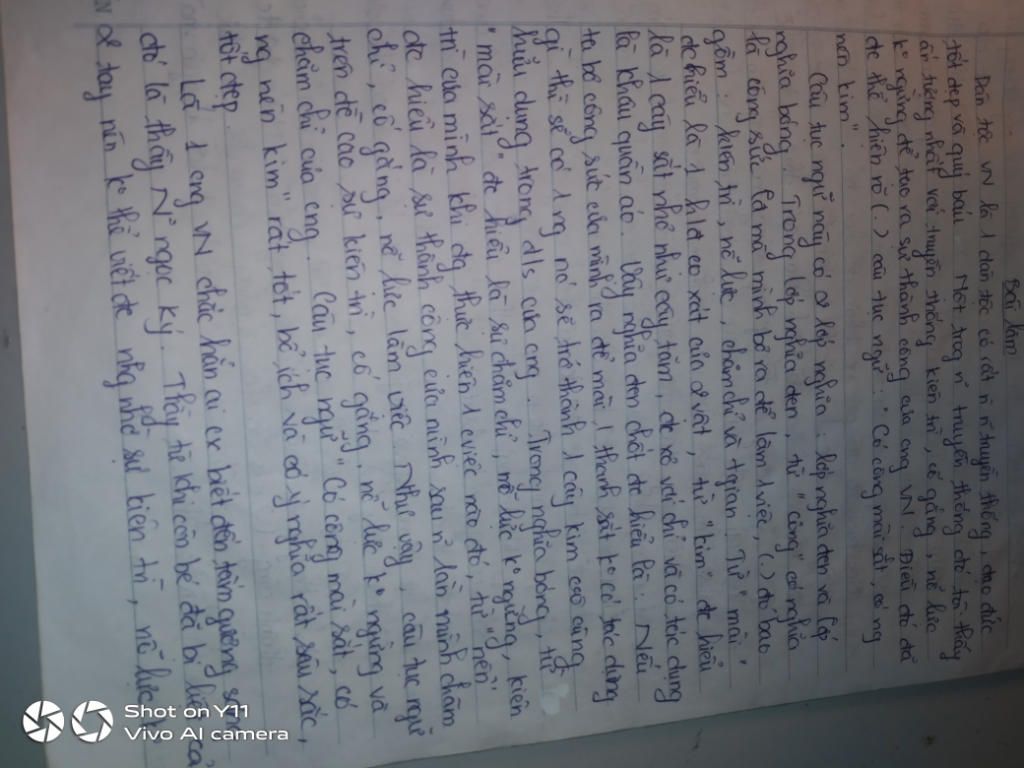 Bài làm
Dân tộc VN là 1 dân tộc có rất n` n` truyền thống, đạo đức
tốt đẹp và quý báu. Một trog n` truyền thống đó tô thấy
ấn tượng nhất với truyền thống kiên trì, cố gắng, nỗ lực
k° ngừng để tạo ra sự thành công của cng VN. Điều đó đã
đc thể hiện rõ (.) câu tục ngữ: "Có công mài sắt, có ng
nên kim".
Câu tục ngữ này có 2 lớp nghĩa: lớp nghĩa đen và lớp
nghĩa bóng. Trong lớp nghĩa đen, từ "công" có nghĩa
là công sức lđ mà mình bỏ ra để làm 1 việc, (.) đó bao
gồm: kiên trì, nỗ lực, chăm chỉ và tgian. Từ "mài"
đc hiểu là 1 hđ cọ xát của 2 vật, từ "kim" đc hiểu
là 1 cây sắt nhỏ như cây tăm, đc xỏ với chỉ và có tác dụng
là khâu quần áo. Vậy nghĩa đen chốt đc hiểu là: Nếu
ta bỏ công sức của mình ra để mài 1 thanh sắt k° có tác dụng
gì thì sẽ có 1 ng nó sẽ trở thành 1 cây kim vô cùng
hữu dụng trong đ/s của cng. Trong nghĩa bóng, từ
"mài sắt" đc hiểu là sự chăm chỉ, nỗ lực k° ngừng, kiên
trì của mình khi đg thực hiện 1 cviệc nào đó, từ "nên"
đc hiểu là sự thành công của mình sau n` lần mình chăm
chỉ, cố gắng, nỗ lực làm việc. Như vậy, câu tục ngữ
trên đề cao sự kiên trì, cố gắng, nỗ lực k° ngừng và
chăm chỉ của cng. Câu tục ngữ "Có công mài sắt, có
ng nên kim" rất tốt, bổ ích và có ý nghĩa rất sâu sắc,
tốt đẹp.
Là 1 cng VN chắc hẳn ai cx biết đến tấm gương
đó là thầy N~ Ngọc Ký. Thầy từ khi còn bé đã bị liệt cả
2 tay nên k° thể viết đc nhg nhờ sự kiên trì, nỗ lực
Shot on Y11
Vivo AI camera